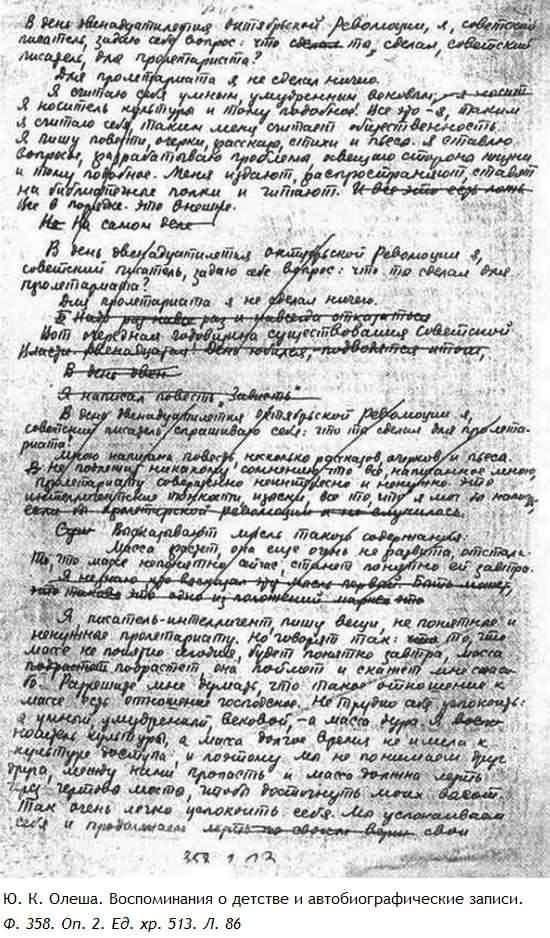 В день двенадцатилетия октябрьской Революции, я, советский
писатель, задаю себе вопрос: что сделал ты, сделал, советский
писатель, для пролетариата?
Для пролетариата я не сделал ничего.
Я считаю себя умным, умудренным вековой; я носит
Я носитель культуры и тому подобное! Все это - я, таким
я считаю себя, таким меня считает общественность.
Я пишу повести, очерки, рассказы, стихи и пьесы. Я ставлю
вопросы, разрабатываю проблемы, освещаю стороны жизни
и тому подобное. Меня издают, распространяют, ставят
на библиотечные полки и читают. И все это есть ложь
Все в порядке. Это внешне.
Но На самом деле
В день двенадцатилетия октябрьской Революции я,
советский писатель, задаю себе вопрос: что ты сделал для
пролетариата?
Для пролетариата я не сделал ничего.
Надо раз навсегда раз и навсегда отказаться
Вот очередная годовщина существования Советской
Власти. Двенадцатая! День юбилея, подводятся итоги,
В день двен
Я написал повесть „Зависть"
В день двенадцатилетия октябрьской Революции я,
советский писатель спрашиваю себя: что ты сделал для пролета-
риата?
Мною написаны повесть, несколько рассказов, очерков и пьеса.
Не подлежит никакому сомнению, что все, написанное мною,
пролетариату совершенно неинтересно и ненужно. Это
интеллигентские тонкости, изыски, все то, что я мог бы написать,
если бы пролетарской революции и не случилось.
Высказывают мысль такого содержания:
Масса растет, она еще очень не развита, отстала.
То, что массе непонятно сейчас, станет понятно ей завтра.
Я не знаю кто высказал эту мысль первый. Быть может,
это таково это одно из положений марксизма
Я, писатель-интеллигент, пишу вещи, не понятные и
ненужные пролетариату. Но говорят так: что то, что
массе не понятно сегодня, будет понятно завтра, масса
подрастет подрастет, она поймет и скажет мне спаси-
бо. Разрешите мне думать, что такое отношение к
массе есть отношение господское. Не трудно себе успокоить:
я умный, умудренный, вековой, - а масса дура. Я
носитель культуры, а масса долгое время не имела к
культуре доступа, и поэтому мы не понимаем друг
друга, между нами пропасть и масса должна переть
через чертово место, чтоб достигнуть моих высот.
Так очень легко успокоить себя. Мы успокаиваем
себя и продолжаем переть по своему свои
358 1 513
Ю. К. Олеша. Воспоминания о детстве и автобиографические записи.
Ф. 358. Оп. 2. Ед. хр. 513. Л. 86